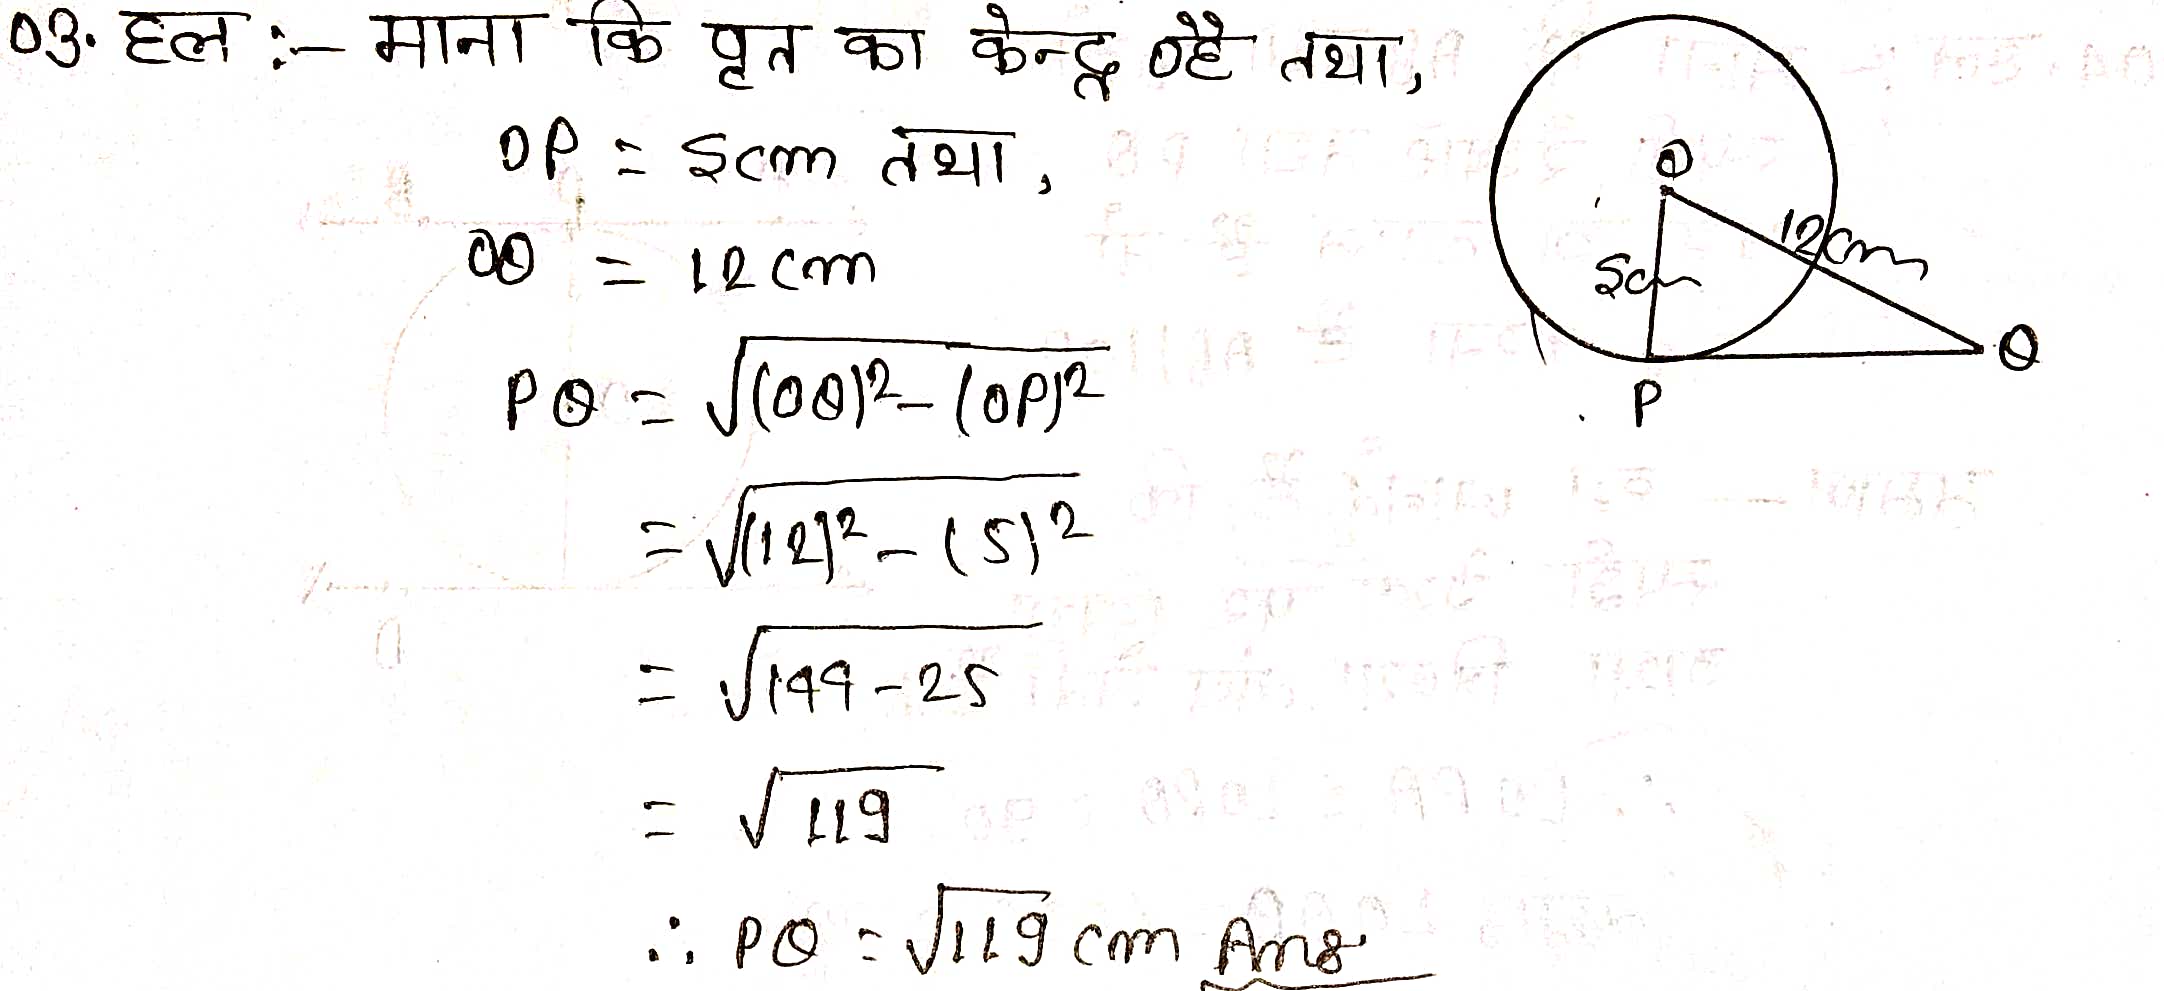 03. हल :- माना कि वृत का केन्द्र O है तथा,
OP = 5cm तथा,
OQ = 12cm
PQ = √(OQ)² - (OP)²
= √(12)² - (5)²
= √144 - 25
= √119
∴ PQ = √119 cm Ans
O
12cm
5cm
Q
P